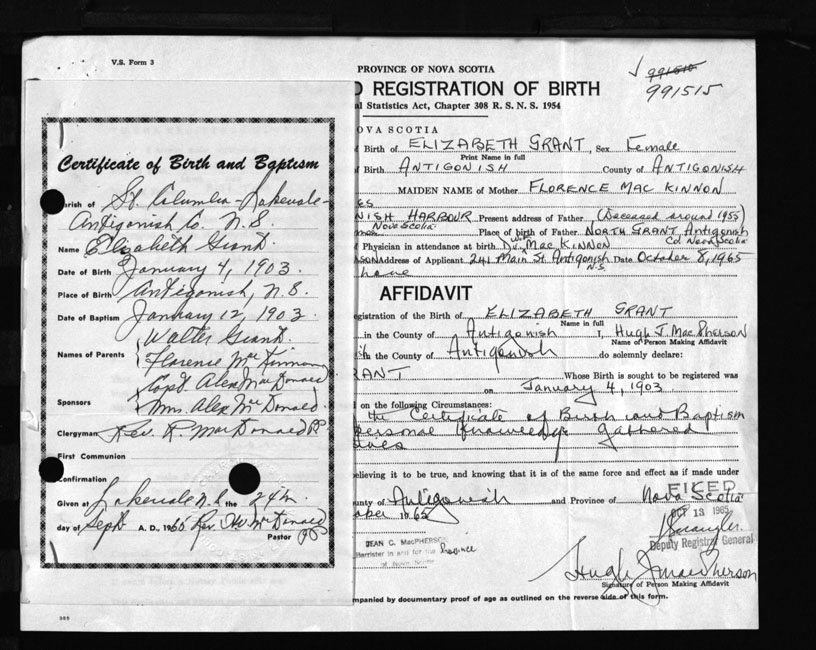 V.S. Form 3
PROVINCE OF NOVA SCOTIA
991515
991515
D REGISTRATION OF BIRTH
al Statistics Act, Chapter 308 R. S. N. S. 1954
Certificate of Birth and Baptism
Parish of St. Columba - Lakevale -
Antigonish Co. N.S.
Name Elizabeth Grant.
Date of Birth January 4, 1903.
Place of Birth Antigonish, N.S.
Date of Baptism January 12, 1903.
Names of Parents Walter Grant.
Florence MacKinnon
Sponsors Capt. Alex MacDonald
Mrs. Alex McDonald
Clergyman Rev. R. MacDonald PP
First Communion
Confirmation
Given at Lakevale N.S. the 24th
day of Sept A. D. 1965 Rev. MacDonald
Pastor PP
OVA SCOTIA
Birth of ELIZABETH GRANT, Sex Female
Print Name in full
Birth ANTIGONISH County of ANTIGONISH
MAIDEN NAME of Mother FLORENCE MAC KINNON
NISH HARBOUR Present address of Father (Deceased around 1955)
Nova Scotia Place of birth of Father NORTH GRANT Antigonish
Co Nova Scotia
Physician in attendance at birth Dr Wm MacKINNON
SON Address of Applicant 241 Main St. Antigonish N.S. Date October 8, 1965
AFFIDAVIT
egistration of the Birth of ELIZABETH GRANT
Name in full
in the County of Antigonish I, Hugh J. MacPHERSON
Name of Person Making Affidavit
in the County of Antigonish do solemnly declare:
RANT Whose Birth is sought to be registered was
on January 4, 1903
on the following Circumstances:
the Certificate of Birth and Baptism
personal knowledge gathered
elieving it to be true, and knowing that it is of the same force and effect as if made under
unty of Antigonish and Province of Nova Scotia
ober 1965
FILED
OCT 13 1965
Deputy Registrar General
JEAN C. MacPHERSON
Barrister in and for the Province
of Nova Scotia
Hugh J MacPherson
Signature of Person Making Affidavit
mpanied by documentary proof of age as outlined on the reverse side of this form.